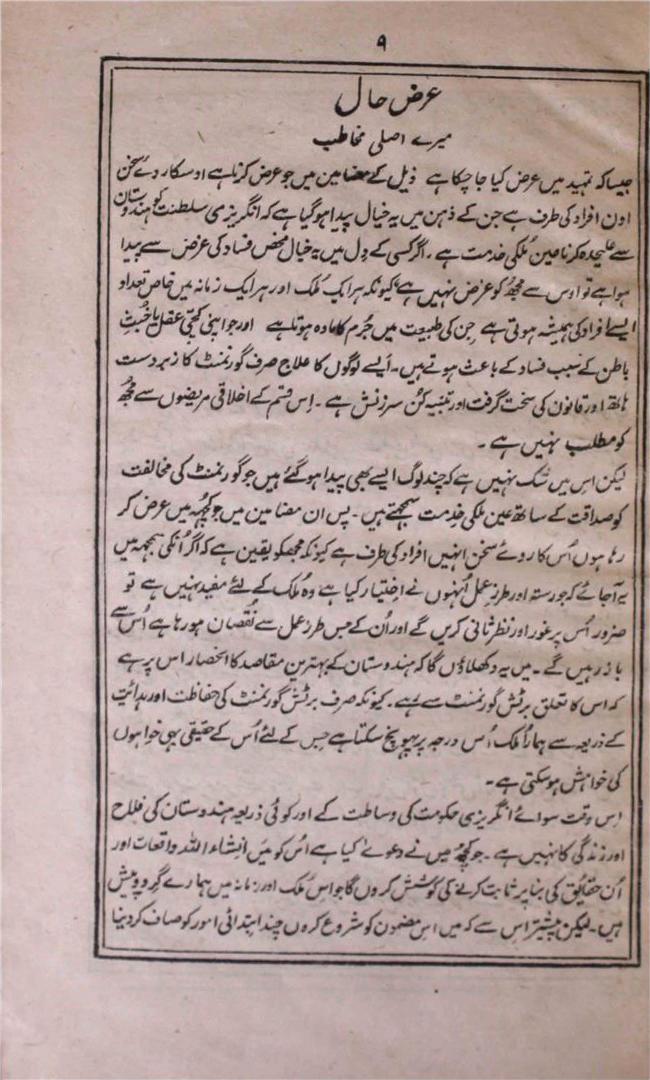 ۹
عرض حال
میرے اصلی مخاطب
جیسا کہ تمہید میں عرض کیا جا چکا ہے ذیل کے مضامین میں جو عرض کرنا ہے اوسکا روئے سخن
اون افراد کی طرف ہے جن کے ذہن میں یہ خیال پیدا ہو گیا ہے کہ انگریزی سلطنت کو ہندوستان
سے علیحدہ کرنا عین ملکی خدمت ہے ۔ اگر کسی کے دل میں یہ خیال محض فساد کی غرض سے پیدا
ہوا ہے تو اوس سے مجھ کو غرض نہیں ہے کیونکہ ہر ایک ملک اور ہر ایک زمانہ میں خاص تعداد
ایسے افراد کی ہمیشہ ہوتی ہے جن کی طبیعت میں جُرم کا مادہ ہوتا ہے اور جو اپنی کجیِ عقل یا خُبثِ
باطن کے سبب فساد کے باعث ہوتے ہیں ۔ ایسے لوگوں کا علاج صرف گورنمنٹ کا زبردست
ہاتھ اور قانون کی سخت گرفت اور تنبیہ کن سرزنش ہے ۔ اِس قسم کے اخلاقی مریضوں سے مجھ
کو مطلب نہیں ہے ۔
لیکن اس میں شک نہیں ہے کہ چند لوگ ایسے بھی پیدا ہو گئے ہیں جو گورنمنٹ کی مخالفت
کو صداقت کے ساتھ عین ملکی خدمت سمجھتے ہیں ۔ پس ان مضامین میں جو کچھہ میں عرض کر
رہا ہوں اُس کا روئے سخن انہیں افراد کی طرف ہے کیونکہ مجھکو یقین ہے کہ اگر اُنکی سمجھہ میں
یہ آجائے کہ جو رستہ اور طرزِ عمل اُنہوں نے اختیار کیا ہے وہ ملک کے لئے مفید نہیں ہے تو
ضرور اُس پر غور اور نظر ثانی کریں گے اور اُن کے جس طرز عمل سے نُقصان ہو رہا ہے اُس سے
باز رہیں گے ۔ میں یہ دکھلاؤں گا کہ ہندوستان کے بہترین مقاصد کا انحصار اس پر ہے
کہ اس کا تعلق برٹش گورنمنٹ سے رہے ۔ کیونکہ صرف برٹش گورنمنٹ کی حفاظت اور ہدائت
کے ذریعہ سے ہمارا ملک اُس درجہ پر پہونچ سکتا ہے جس کے لئے اُس کے حقیقی بہی خواہوں
کی خواہش ہو سکتی ہے ۔
اِس وقت سوائے انگریزی حکومت کی وساطت کے اور کوئی ذریعہ ہندوستان کی فلاح
اور زندگی کا نہیں ہے ۔ جو کچھ میں نے دعوےٰ کیا ہے اُس کو میں انشاء اللہ واقعات اور
اُن حقایق کی بنا پر ثابت کرنے کی کوشش کروں گا جو اس ملک اور زمانہ میں ہمارے گرد و پیش
ہیں ۔ لیکن پیشتر اس سے کہ میں اس مضمون کو شروع کروں چند ابتدائی امور کو صاف کر دینا